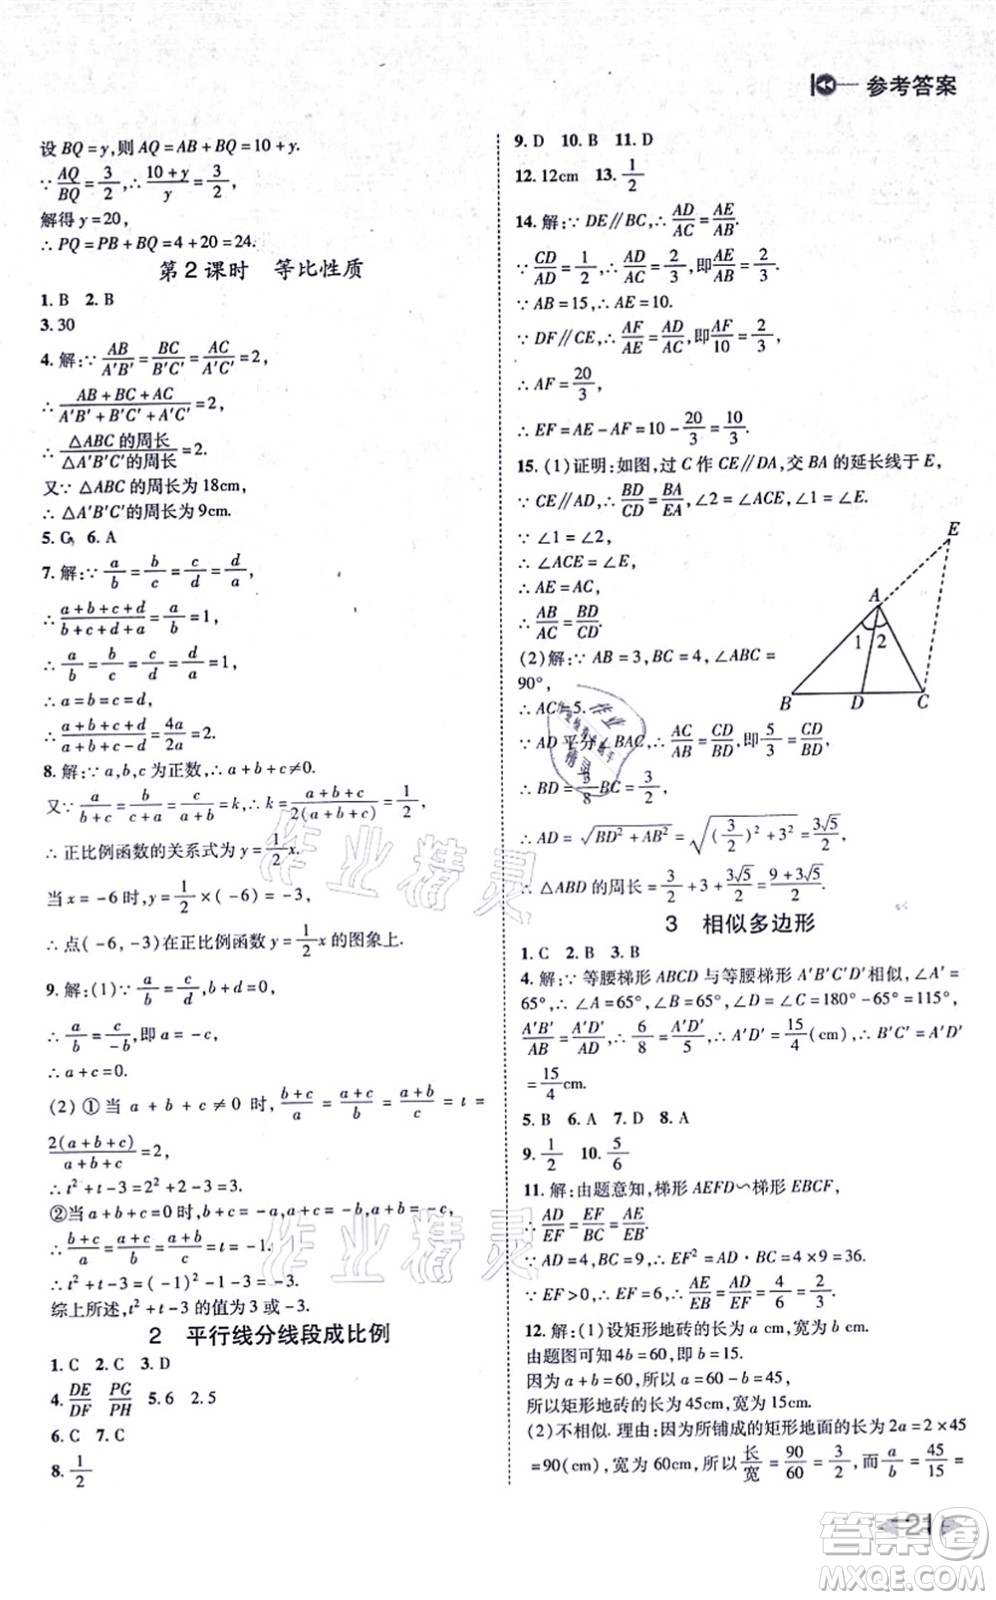 参考答案
设 BQ = y,则 AQ = AB + BQ = 10 + y.
∵ AQ/BQ = 3/2,∴ (10 + y)/y = 3/2,
解得 y = 20,
∴ PQ = PB + BQ = 4 + 20 = 24.
第 2 课时 等比性质
1. B 2. B
3. 30
4. 解:∵ AB/A′B′ = BC/B′C′ = AC/A′C′ = 2,
∴ (AB + BC + AC)/(A′B′ + B′C′ + A′C′) = 2,
∴ △ABC 的周长/△A′B′C′的周长 = 2.
又∵ △ABC 的周长为 18cm,
∴ △A′B′C′的周长为 9cm.
5. C 6. A
7. 解:∵ a/b = b/c = c/d = d/a,
∴ (a + b + c + d)/(b + c + d + a) = a/b = 1,
∴ a/b = b/c = c/d = d/a = 1,
∴ a = b = c = d,
∴ (a + b + c + d)/(a + d) = 4a/2a = 2.
8. 解:∵ a,b,c 为正数,∴ a + b + c ≠ 0.
又∵ a/(b + c) = b/(a + c) = c/(a + b) = k,∴ k = (a + b + c)/2(a + b + c) = 1/2,
∴ 正比例函数的关系式为 y = 1/2 x.
当 x = -6 时,y = 1/2 × ( -6) = -3,
∴ 点( -6, -3)在正比例函数 y = 1/2 x 的图象上.
9. 解:(1)∵ a/b = c/d,b + d = 0,
∴ a/b = c/-b,即 a = -c,
∴ a + c = 0.
(2) ①当 a + b + c ≠ 0 时,(b + c)/a = (a + c)/b = (a + b)/c = t =
2(a + b + c)/(a + b + c) = 2,
∴ t² + t - 3 = 2² + 2 - 3 = 3.
②当 a + b + c = 0 时,b + c = -a,a + c = -b,a + b = -c,
∴ (b + c)/a = (a + c)/b = (a + b)/c = t = -1.
∴ t² + t - 3 = ( -1)² - 1 - 3 = -3.
综上所述,t² + t - 3 的值为 3 或 -3.
2 平行线分线段成比例
1. C 2. C 3. D
4. DE/DF PG/PH 5. 6 2. 5
6. C 7. C
8. 1/2
9. D 10. B 11. D
12. 12cm 13. 1/2
14. 解:∵ DE∥BC,∴ AD/AC = AE/AB.
∵ CD/AD = 1/2,∴ AD/AC = 2/3,即 AE/AB = 2/3.
∵ AB = 15,∴ AE = 10.
∵ DF∥CE,∴ AF/AE = AD/AC,即 AF/10 = 2/3,
∴ AF = 20/3,
∴ EF = AE - AF = 10 - 20/3 = 10/3.
15. (1)证明:如图,过 C 作 CE∥DA,交 BA 的延长线于 E,
∵ CE∥AD,∴ BD/CD = BA/EA,∠2 = ∠ACE,∠1 = ∠E.
∵ ∠1 = ∠2,
∴ ∠ACE = ∠E,
∴ AE = AC,
∴ AB/AC = BD/CD.
(2)解:∵ AB = 3,BC = 4,∠ABC =
90°,
∴ AC = 5.
∵ AD 平分∠BAC,∴ AC/AB = CD/BD,即 5/3 = CD/BD,
∴ BD = 3/8 BC = 3/2,
∴ AD = √(BD² + AB²) = √((3/2)² + 3²) = 3√5/2,
∴ △ABD 的周长 = 3/2 + 3 + 3√5/2 = (9 + 3√5)/2.
E
A
1 2
B D C
3 相似多边形
1. C 2. B 3. B
4. 解:∵ 等腰梯形 ABCD 与等腰梯形 A′B′C′D′相似,∠A′ =
65°,∴ ∠A = 65°,∠B = 65°,∠D = ∠C = 180° - 65° = 115°,
A′B′/AB = A′D′/AD,∴ 6/8 = A′D′/5,∴ A′D′ = 15/4(cm),∴ B′C′ = A′D′
= 15/4 cm.
5. B 6. A 7. D 8. A
9. 1/2 10. 5/6
11. 解:由题意知,梯形 AEFD∽梯形 EBCF,
∴ AD/EF = EF/BC = AE/EB.
∵ AD = 4,BC = 9,∴ EF² = AD · BC = 4 × 9 = 36.
∵ EF > 0,∴ EF = 6,∴ AE/EB = AD/EF = 4/6 = 2/3.
12. 解:(1)设矩形地砖的长为 a,宽为 b,
由题图可知 4b = 60,即 b = 15.
因为 a + b = 60,所以 a = 60 - b = 45,
所以矩形地砖的长为 45cm,宽为 15cm.
(2)不相似. 理由:因为所铺成的矩形地面的长为 2a = 2 × 45
= 90(cm),宽为 60cm,所以 长/宽 = 90/60 = 3/2,而 a/b = 45/15 =
21
作业精灵
作业精灵
作业精灵
答案圈